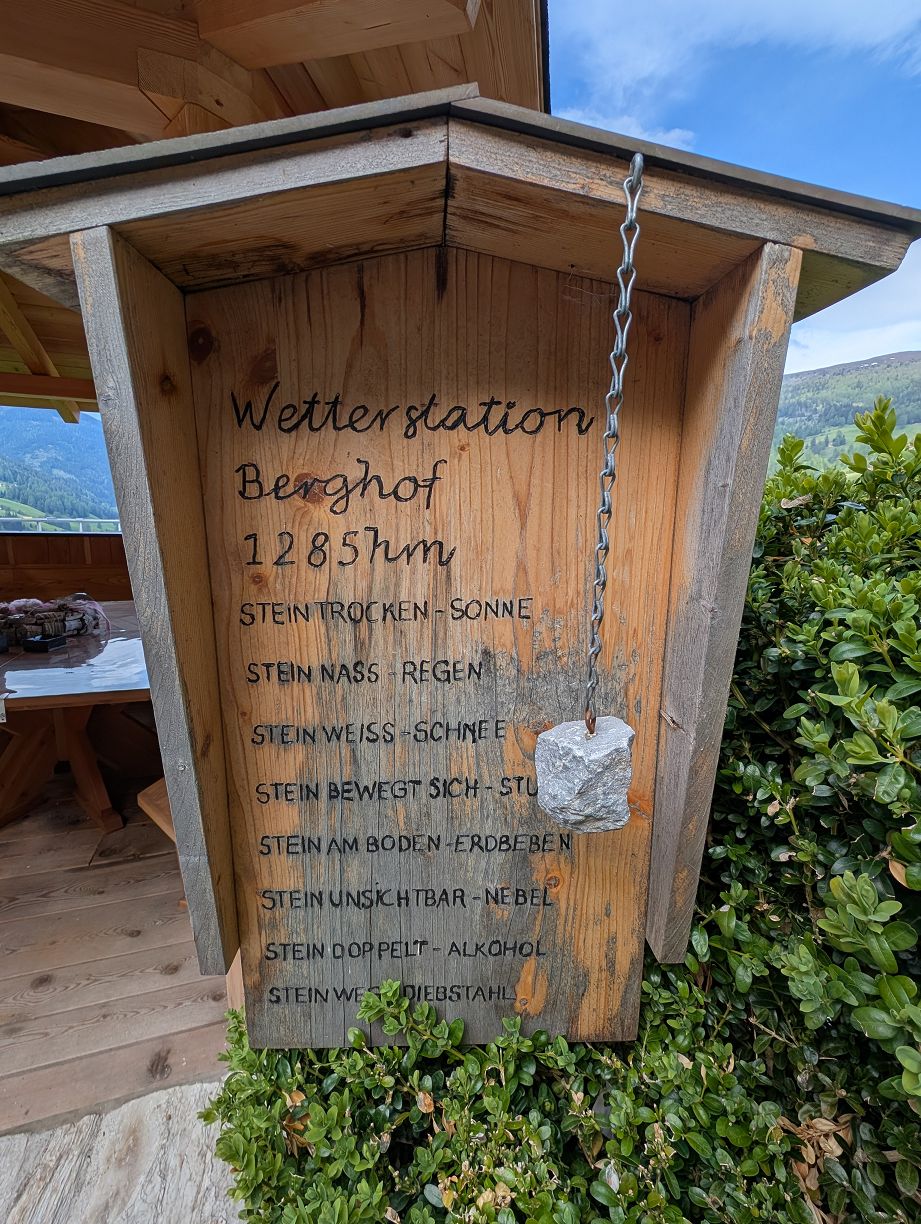 Wetterstation
Berghof
1285hm
STEIN TROCKEN - SONNE
STEIN NASS - REGEN
STEIN WEISS - SCHNEE
STEIN BEWEGT SICH -
STEIN AM BODEN - ERDBEBEN
STEIN UNSICHTBAR - NEBEL
STEIN DOPPELT - ALKOHOL
STEIN DIEBSTAHL